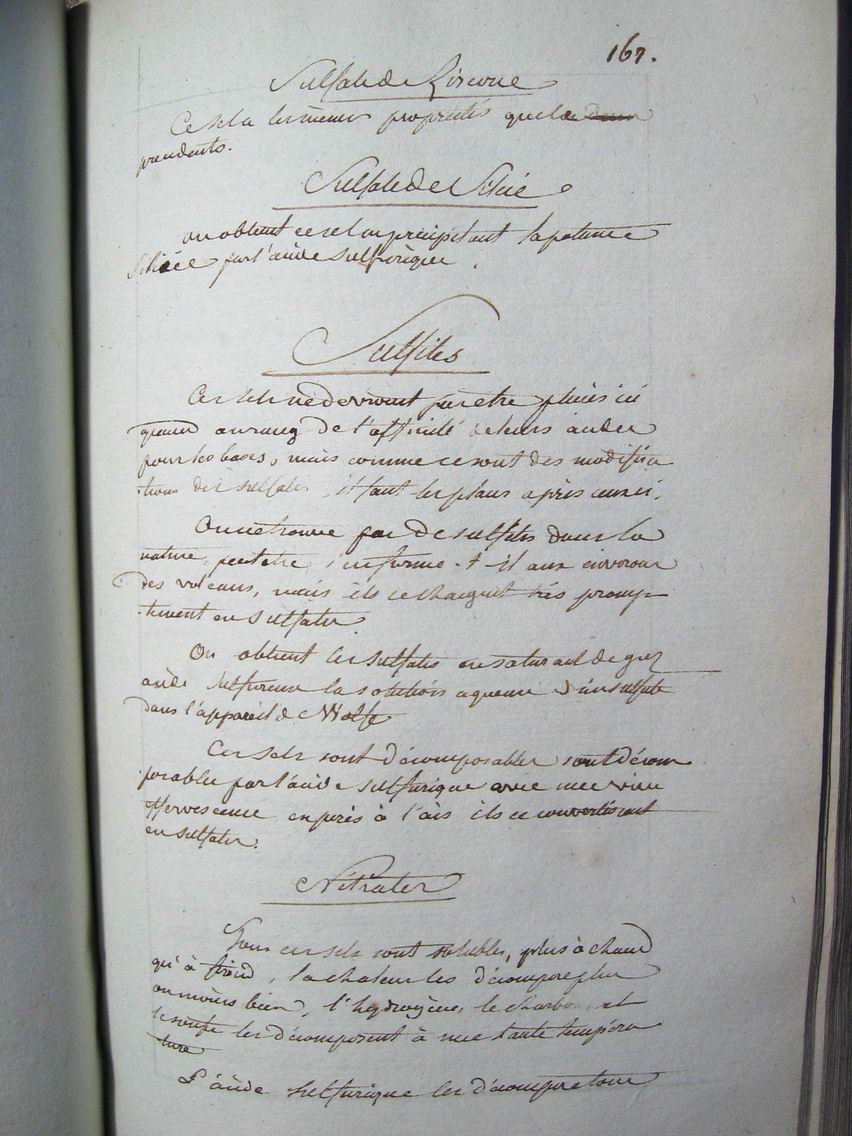 167.
Sulfate de Zircone
Ce sel a les mêmes propriétés que les
précédents.
Sulfate de Silice
on obtient ce sel en précipitant la potasse
Silicée par l'acide sulfurique.
Sulfites
Ces sels ne devroient pas etre placés ici
quand au rang de l'affinité de leurs acides
pour les bases, mais comme ce sont des modifica
tions des sulfates, il faut les placer après aussi.
On ne trouve pas de sulfites dans la
nature, peut etre s'en forme-t-il aux environs
des volcans, mais ils se changent très promp-
tement en sulfates.
On obtient les sulfites en saturant de gaz
acide sulfureux la solution aqueuse d'un sulfite
dans l'appareil de Wolfe
Ces sels sont décomposables sont décom
posables par l'acide sulfurique avec une vive
effervescence exposés à l'air ils se convertissent
en sulfates.
Nitrates
Tous ces sels sont solubles, plus à chaud
qu'à froid, la chaleur les décompose plus
ou moins bien, l'hydrogène, le charbon et
le soufre les décomposent à une haute tempéra
ture
L'acide sulfurique les décompose tous